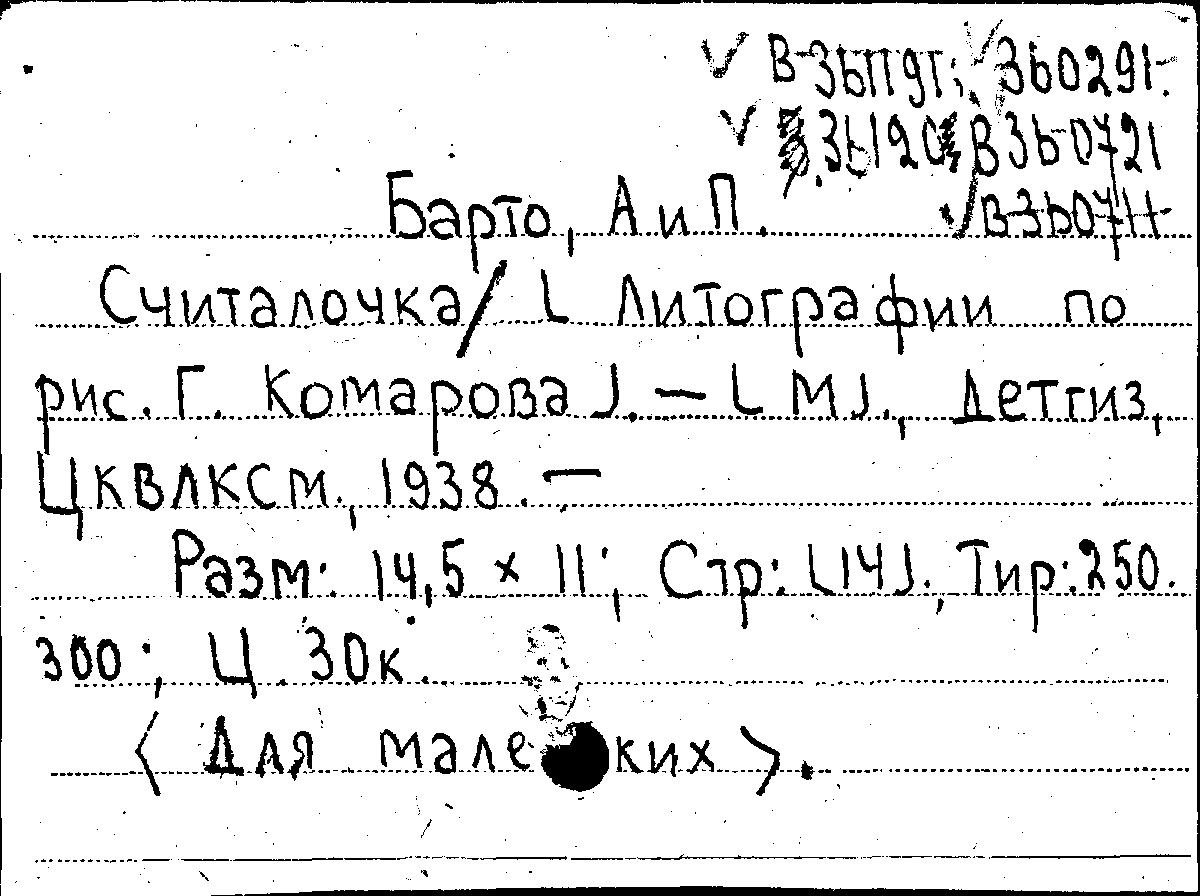 ✓ В-36П91; ✓ 360291.
✓ 36120 В360721
✓ В-360711
Барто, А и П.
Считалочка/ [ Литографии по
рис. Г. Комарова ]. — [ М ]., Детгиз,
ЦКВЛКСМ., 1938. —
Разм: 14,5 × 11; Стр: [14]., Тир: 250.
300; Ц. 30к.
< Для мале ких >.